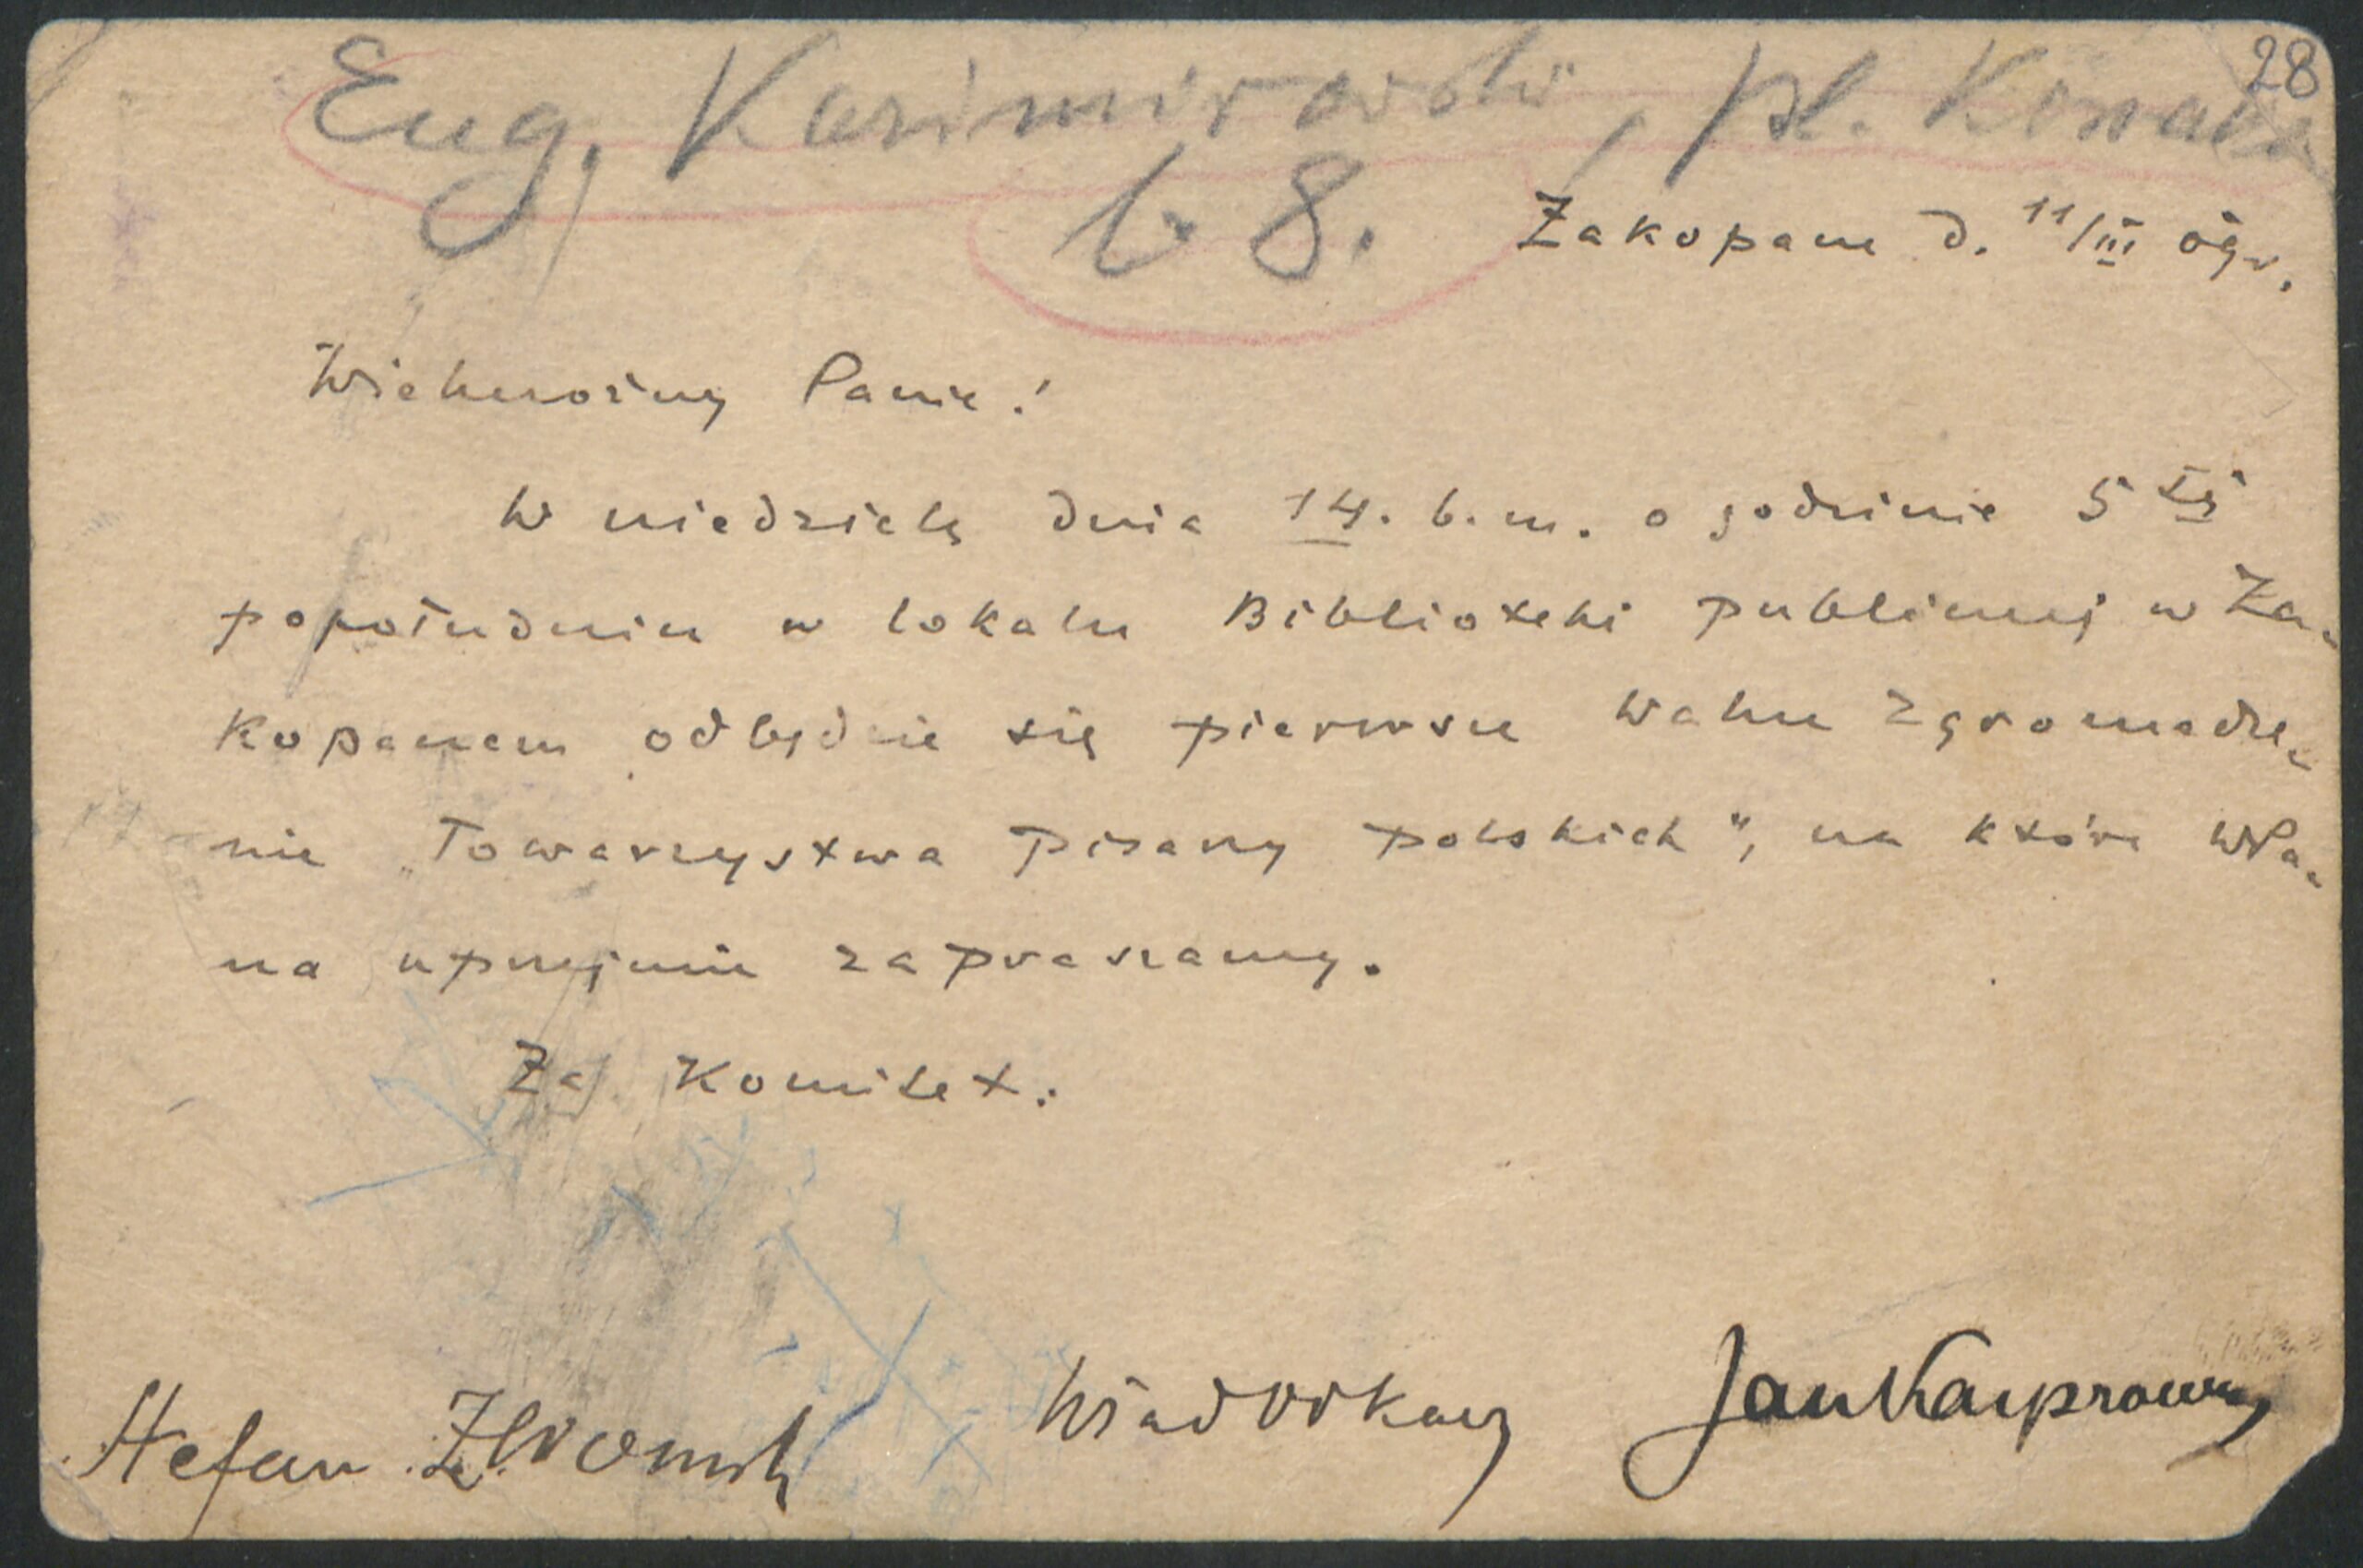 28
Eug. Kazimirowski, pl. Kowalska
b 8.
Zakopane d. 11/III 09 r.
Wielmożny Panie!
W niedzielę dnia 14. b. m. o godzinie 5 tej
popołudniu w lokalu Biblioteki publicznej w Za-
kopanem odbędzie się pierwsze walne zgromadze-
nie „Towarzystwa pisarzy polskich", na które WPa-
na uprzejmie zapraszamy.
Za Komitet:
Stefan Żeromski Wład Orkan Jan Kasprowicz